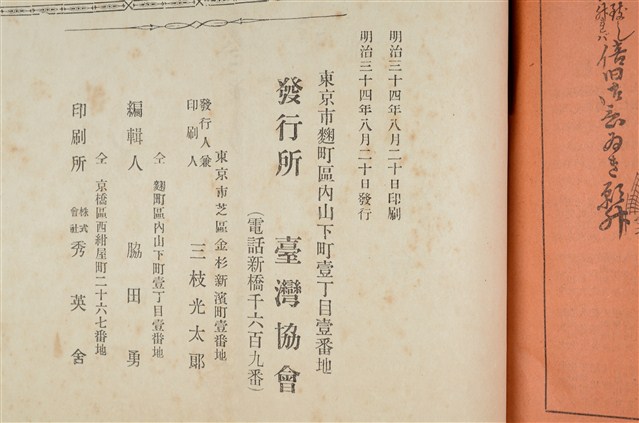 明治三十四年八月二十日印刷
明治三十四年八月二十日發行
東京市麴町區內山下町壹丁目壹番地
發行所　臺灣協會
（電話新橋千六百九番）
東京市芝區金杉新濱町壹番地
發行人兼印刷人　三枝光太郞
仝　麴町區內山下町壹丁目壹番地
編輯人　脇田勇
仝　京橋區西紺屋町二十六七番地
印刷所　株式會社秀英舍